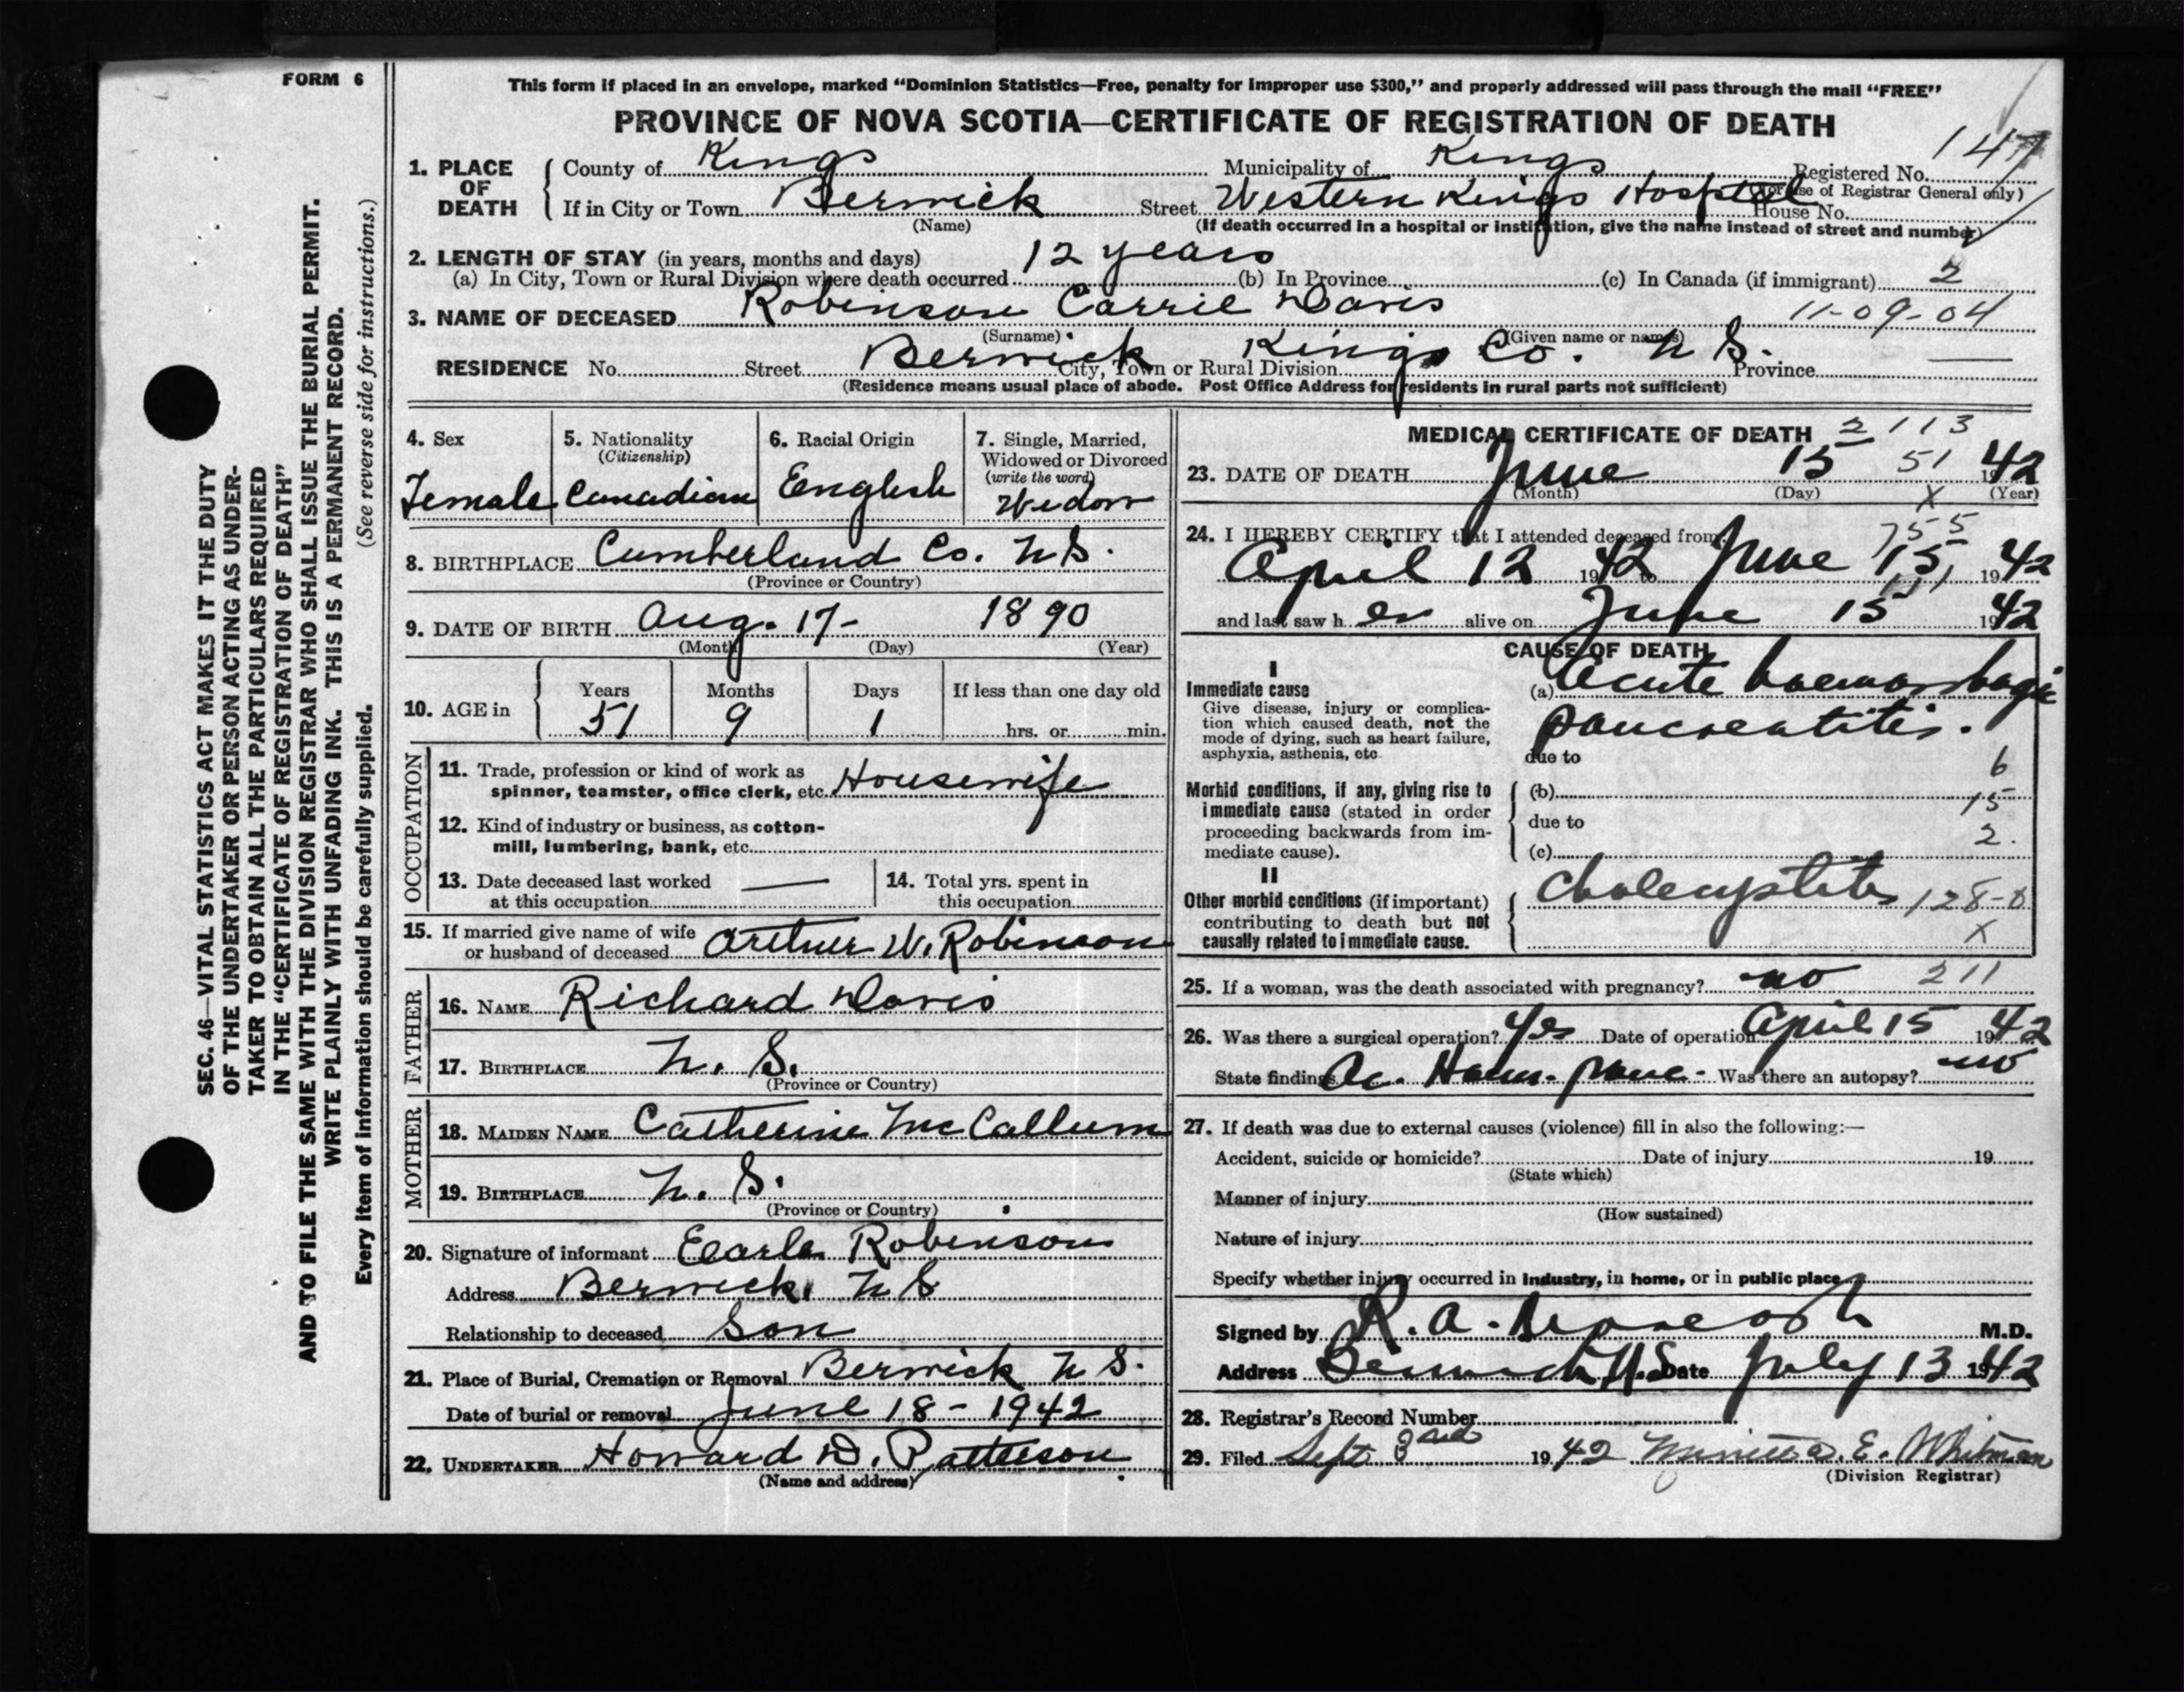 FORM 6
This form if placed in an envelope, marked “Dominion Statistics—Free, penalty for improper use $300,” and properly addressed will pass through the mail “FREE”
PROVINCE OF NOVA SCOTIA—CERTIFICATE OF REGISTRATION OF DEATH
1. PLACE OF DEATH County of Kings Municipality of Kings Registered No. 147
(For use of Registrar General only)
If in City or Town Berwick Street Western Kings Hospital House No.
(Name) (If death occurred in a hospital or institution, give the name instead of street and number)
2. LENGTH OF STAY (in years, months and days) 12 years
(a) In City, Town or Rural Division where death occurred (b) In Province (c) In Canada (if immigrant) 2
3. NAME OF DECEASED Robinson Carrie Davis 11-09-04
(Surname) (Given name or names)
RESIDENCE No. Street Berwick Kings Co. N S. City, Town or Rural Division Province
(Residence means usual place of abode. Post Office Address for residents in rural parts not sufficient)
4. Sex Female
5. Nationality (Citizenship) Canadian
6. Racial Origin English
7. Single, Married, Widowed or Divorced (write the word) Widow
8. BIRTHPLACE Cumberland Co. N S.
(Province or Country)
9. DATE OF BIRTH Aug. 17- 1890
(Month) (Day) (Year)
10. AGE in Years Months Days If less than one day old
51 9 1 hrs. or min.
OCCUPATION
11. Trade, profession or kind of work as spinner, teamster, office clerk, etc. Housewife
12. Kind of industry or business, as cotton-mill, lumbering, bank, etc.
13. Date deceased last worked at this occupation —
14. Total yrs. spent in this occupation
15. If married give name of wife or husband of deceased Arthur W. Robinson
FATHER
16. NAME Richard Davis
17. BIRTHPLACE N. S.
(Province or Country)
MOTHER
18. MAIDEN NAME Catherine McCallum
19. BIRTHPLACE N. S.
(Province or Country)
20. Signature of informant Earle Robinson
Address Berwick, N S
Relationship to deceased Son
21. Place of Burial, Cremation or Removal Berwick N S.
Date of burial or removal June 18 - 1942
22. UNDERTAKER Howard D. Patterson
(Name and address)
MEDICAL CERTIFICATE OF DEATH 2 113
23. DATE OF DEATH June 15 51 1942
(Month) (Day) X (Year)
24. I HEREBY CERTIFY that I attended deceased from 755
April 12 1942 to June 15, 1942
and last saw h er alive on June 15 1942
CAUSE OF DEATH
I
Immediate cause
Give disease, injury or complication which caused death, not the mode of dying, such as heart failure, asphyxia, asthenia, etc.
(a) Acute haemorrhagic
pancreatitis.
due to 6
Morbid conditions, if any, giving rise to immediate cause (stated in order proceeding backwards from immediate cause).
(b) 15
due to 2.
(c)
II
Other morbid conditions (if important) contributing to death but not causally related to immediate cause.
Cholecystitis 128-0
X
25. If a woman, was the death associated with pregnancy? no 211
26. Was there a surgical operation? Yes Date of operation April 15 1942
State findings Ac. Haem. panc. Was there an autopsy? no
27. If death was due to external causes (violence) fill in also the following:—
Accident, suicide or homicide? Date of injury 19
(State which)
Manner of injury
(How sustained)
Nature of injury
Specify whether injury occurred in industry, in home, or in public place
Signed by R. A. M.D.
Address Berwick N.S. Date July 13 1942
28. Registrar's Record Number
29. Filed Sept 3rd 1942 E. Whitman
(Division Registrar)
SEC. 46—VITAL STATISTICS ACT MAKES IT THE DUTY
OF THE UNDERTAKER OR PERSON ACTING AS UNDER-
TAKER TO OBTAIN ALL THE PARTICULARS REQUIRED
IN THE “CERTIFICATE OF REGISTRATION OF DEATH”
AND TO FILE THE SAME WITH THE DIVISION REGISTRAR WHO SHALL ISSUE THE BURIAL PERMIT.
WRITE PLAINLY WITH UNFADING INK. THIS IS A PERMANENT RECORD.
Every item of information should be carefully supplied. (See reverse side for instructions.)